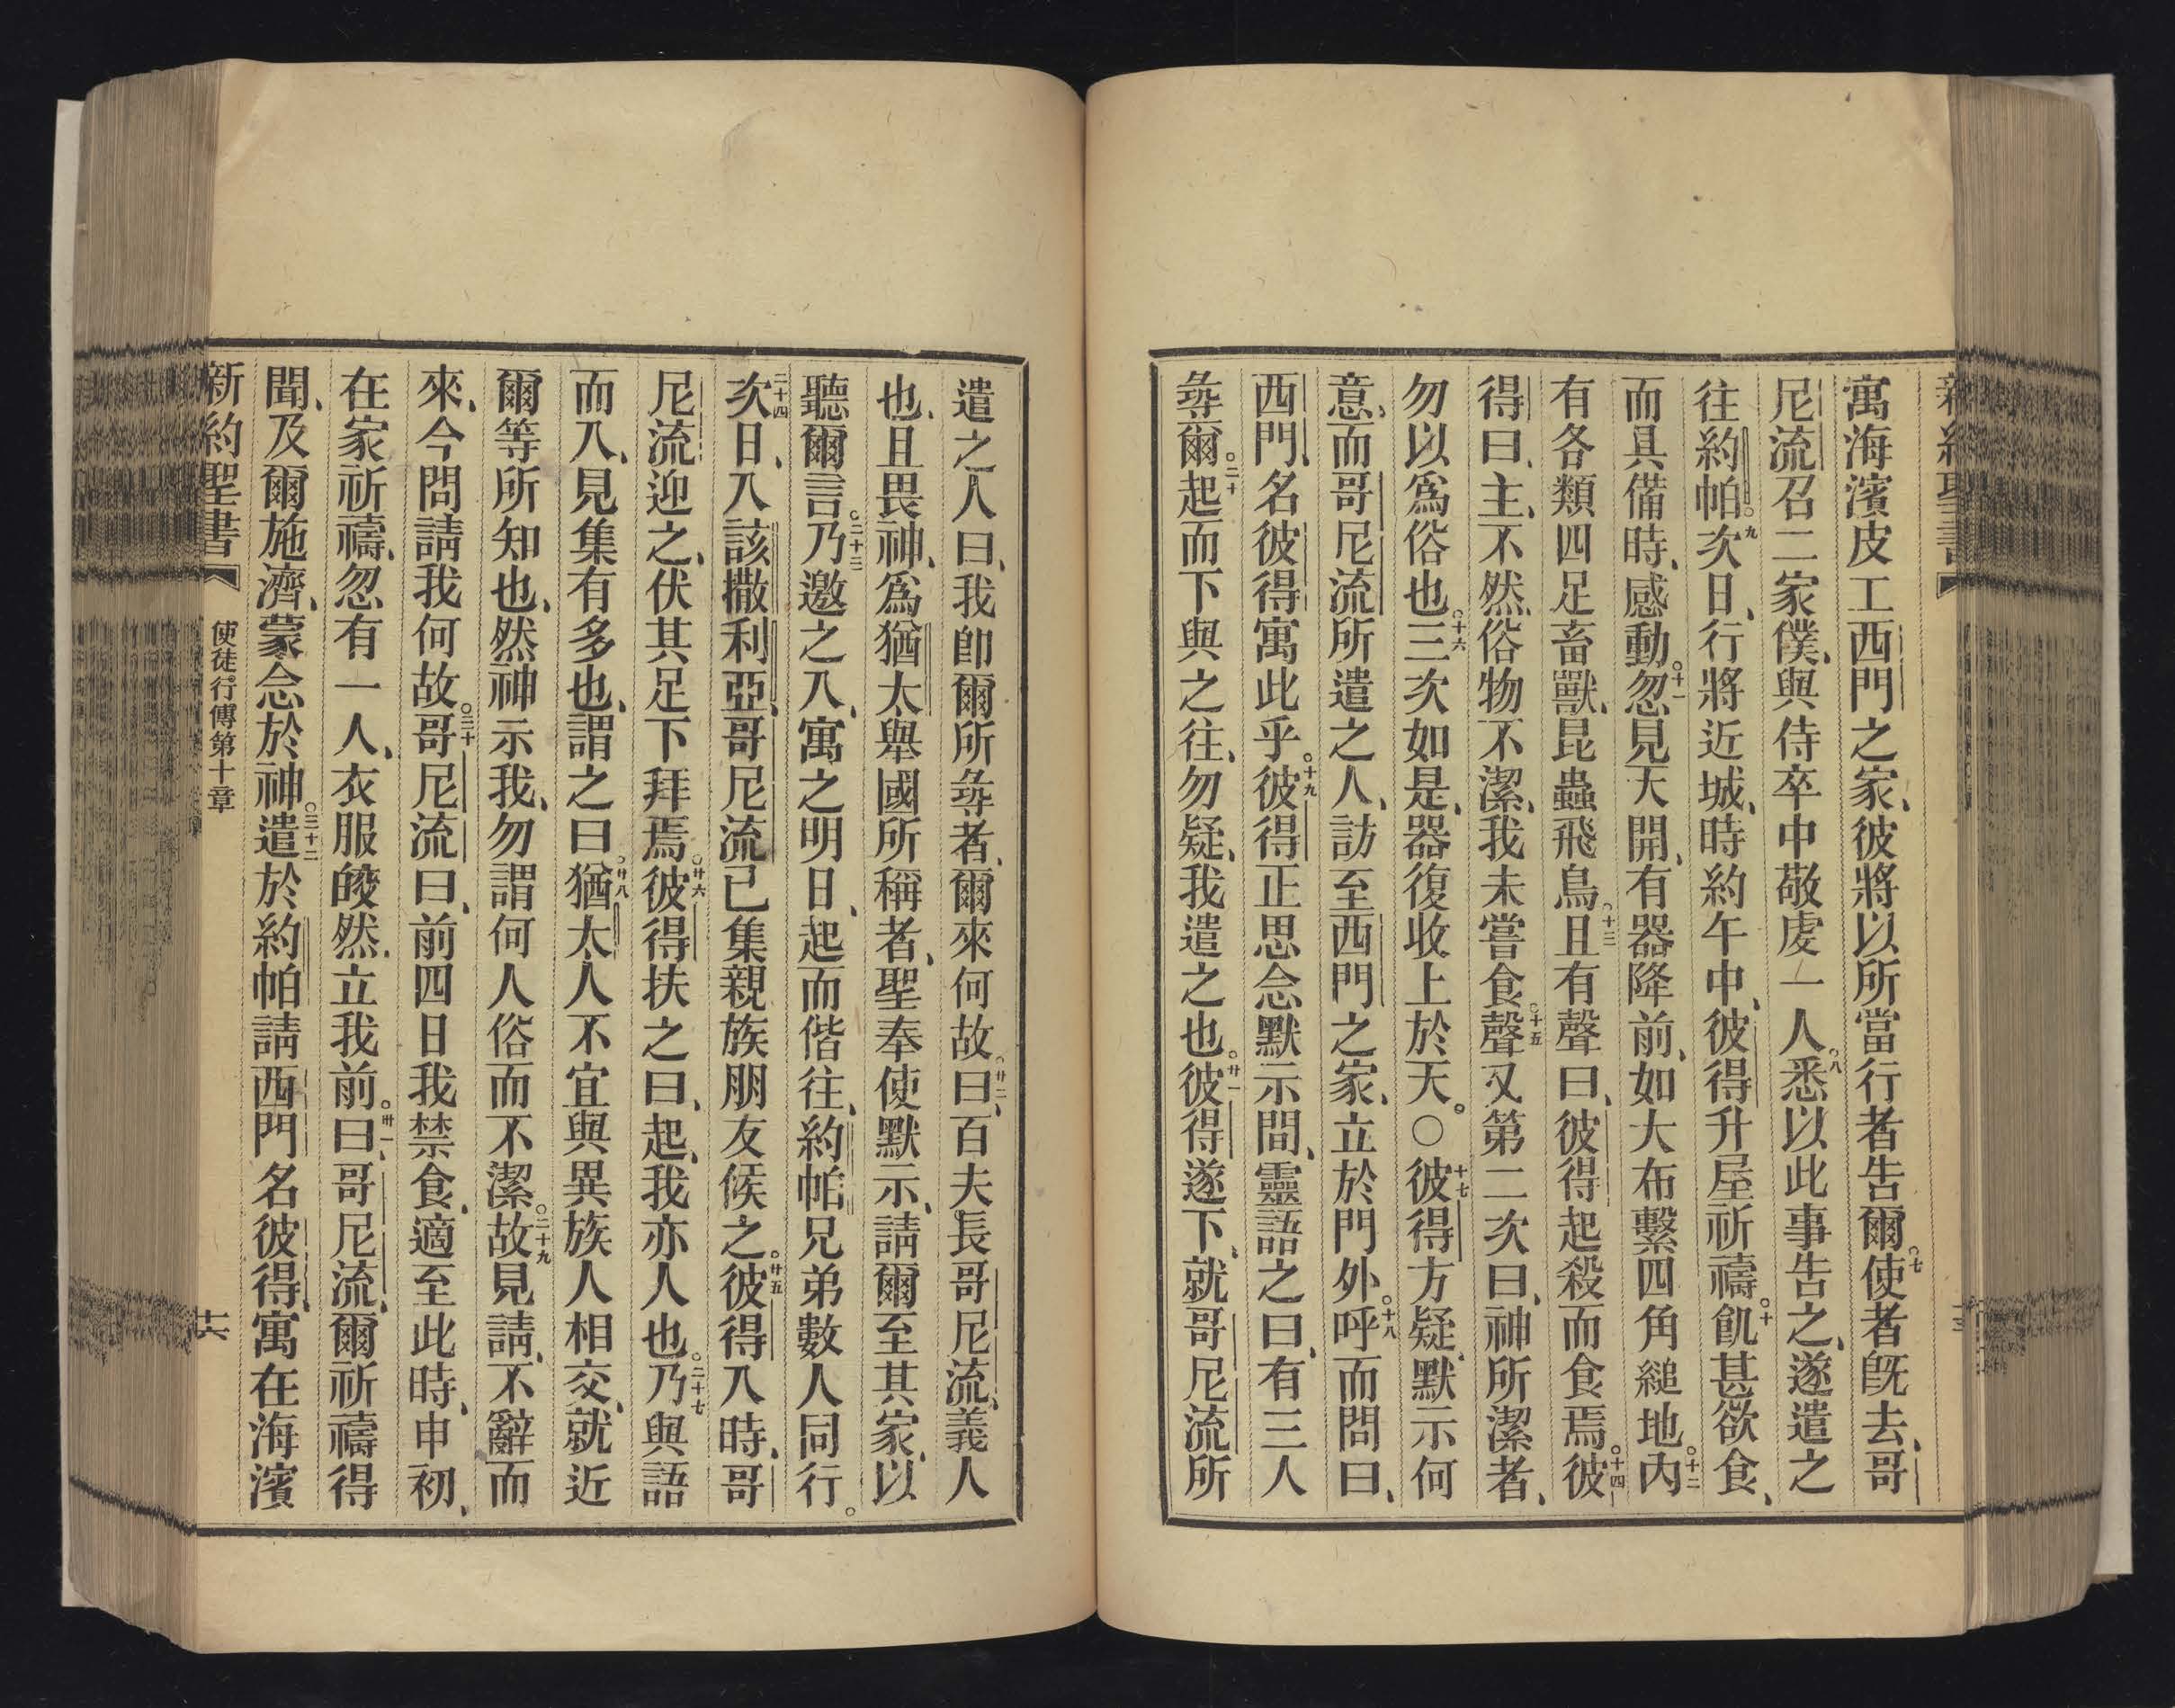 寓海濱皮工西門之家、彼將以所當行者告爾。七使者旣去、哥
尼流召二家僕、與侍卒中敬虔一人。八悉以此事告之、遂遣之
往約帕。九次日、行將近城、時約午中、彼得升屋祈禱。十飢甚欲食、
而具備時、感動。十一忽見天開、有器降前、如大布繫四角縋地。十二內
有各類四足畜獸、昆蟲飛鳥。十三且有聲曰、彼得起殺而食焉。十四彼
得曰、主、不然、俗物不潔、我未嘗食。十五聲又第二次曰、神所潔者、
勿以爲俗也。十六三次如是、器復收上於天。〇十七彼得方疑、默示何
意、而哥尼流所遣之人、訪至西門之家、立於門外。十八呼而問曰、
西門、名彼得寓此乎。十九彼得正思念默示間、靈語之曰、有三人
尋爾。二十起而下與之往、勿疑、我遣之也。廿一彼得遂下、就哥尼流所
遣之人曰、我卽爾所尋者、爾來何故。廿二曰、百夫長哥尼流、義人
也、且畏神、爲猶太舉國所稱者、聖奉使默示、請爾至其家、以
聽爾言。二十三乃邀之入、寓之明日、起而偕往、約帕兄弟數人同行。
二十四次日、入該撒利亞、哥尼流已集親族朋友候之。廿五彼得入時、哥
尼流迎之、伏其足下拜焉。廿六彼得扶之曰、起、我亦人也。二十七乃與語
而入、見集有多也、謂之曰。廿八猶太人不宜與異族人相交、就近
爾等所知也、然神示我、勿謂何人俗而不潔。二十九故見請、不辭而
來、今問請我何故。三十哥尼流曰、前四日我禁食、適至此時、申初、
在家祈禱、忽有一人、衣服皎然、立我前。卅一曰、哥尼流、爾祈禱得
聞、及爾施濟、蒙念於神。三十二遣於約帕請西門名彼得、寓在海濱
新約聖書
使徒行傳第十章
十六